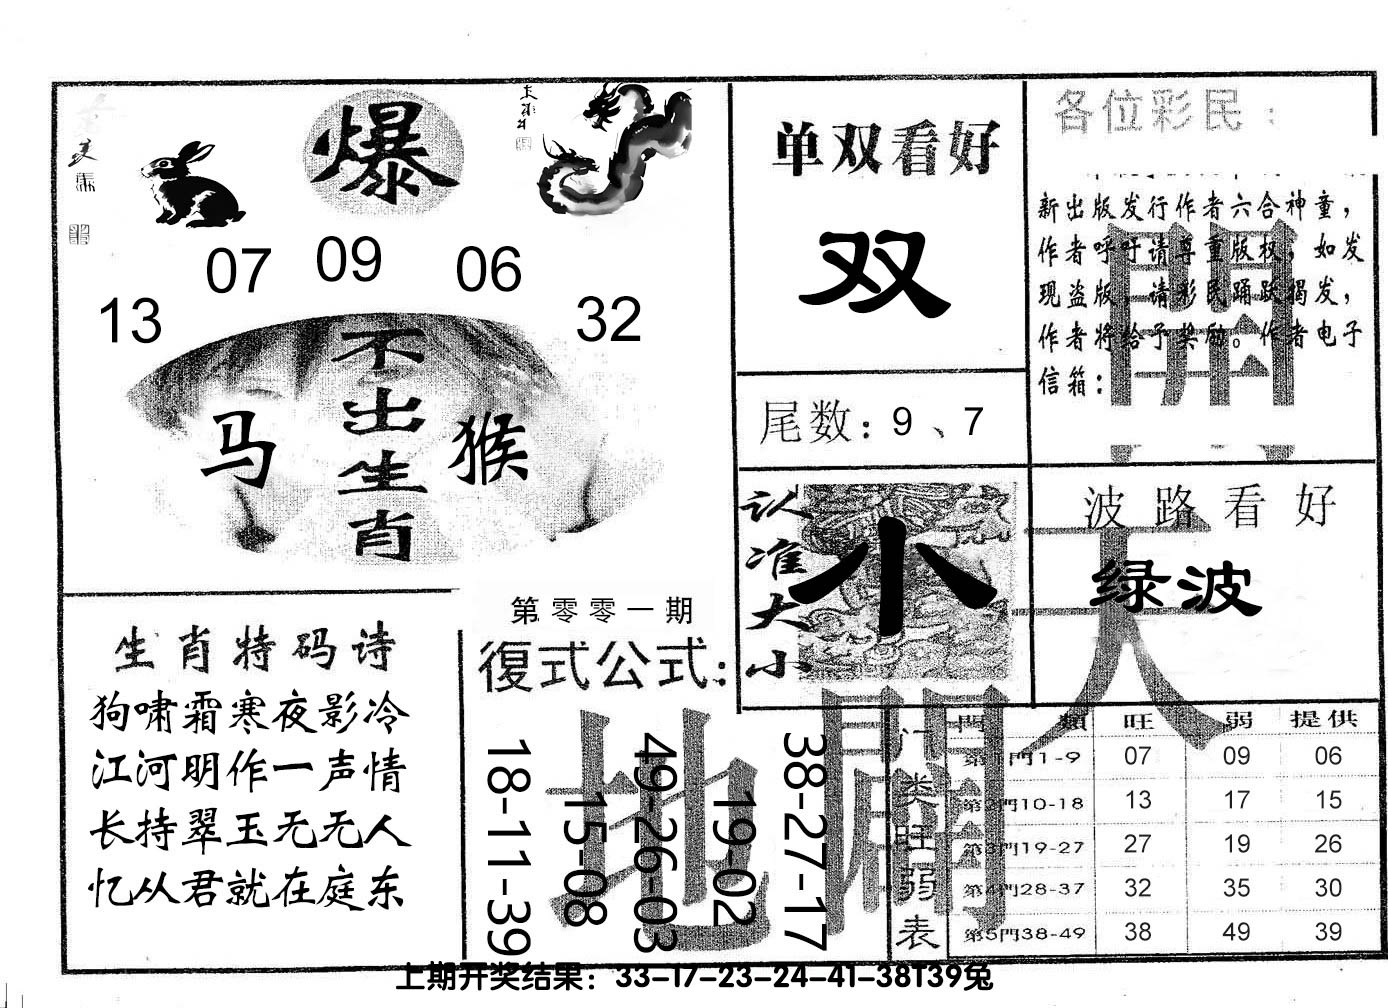 爆
07 09 06
13 32
不出生肖
马 猴
生肖特码诗
狗啸霜寒夜影冷
江河明作一声情
长持翠玉无无人
忆从君就在庭东
第零零一期
復式公式:
18-11-39
15-08
49-26-03
19-02
38-27-17
单双看好
双
尾数: 9、7
认准大小
小
各位彩民:
新出版发行作者六合神童,
作者呼吁请尊重版权,如发
现盗版,请彩民踊跃揭发,
作者将给予奖励。作者电子
信箱:
波路看好
绿波
開天
地闢
门类旺弱表
門類 旺 弱 提供
第1門1-9 07 09 06
第2門10-18 13 17 15
第3門19-27 27 19 26
第4門28-37 32 35 30
第5門38-49 38 49 39
上期开奖结果：33-17-23-24-41-38T39兔